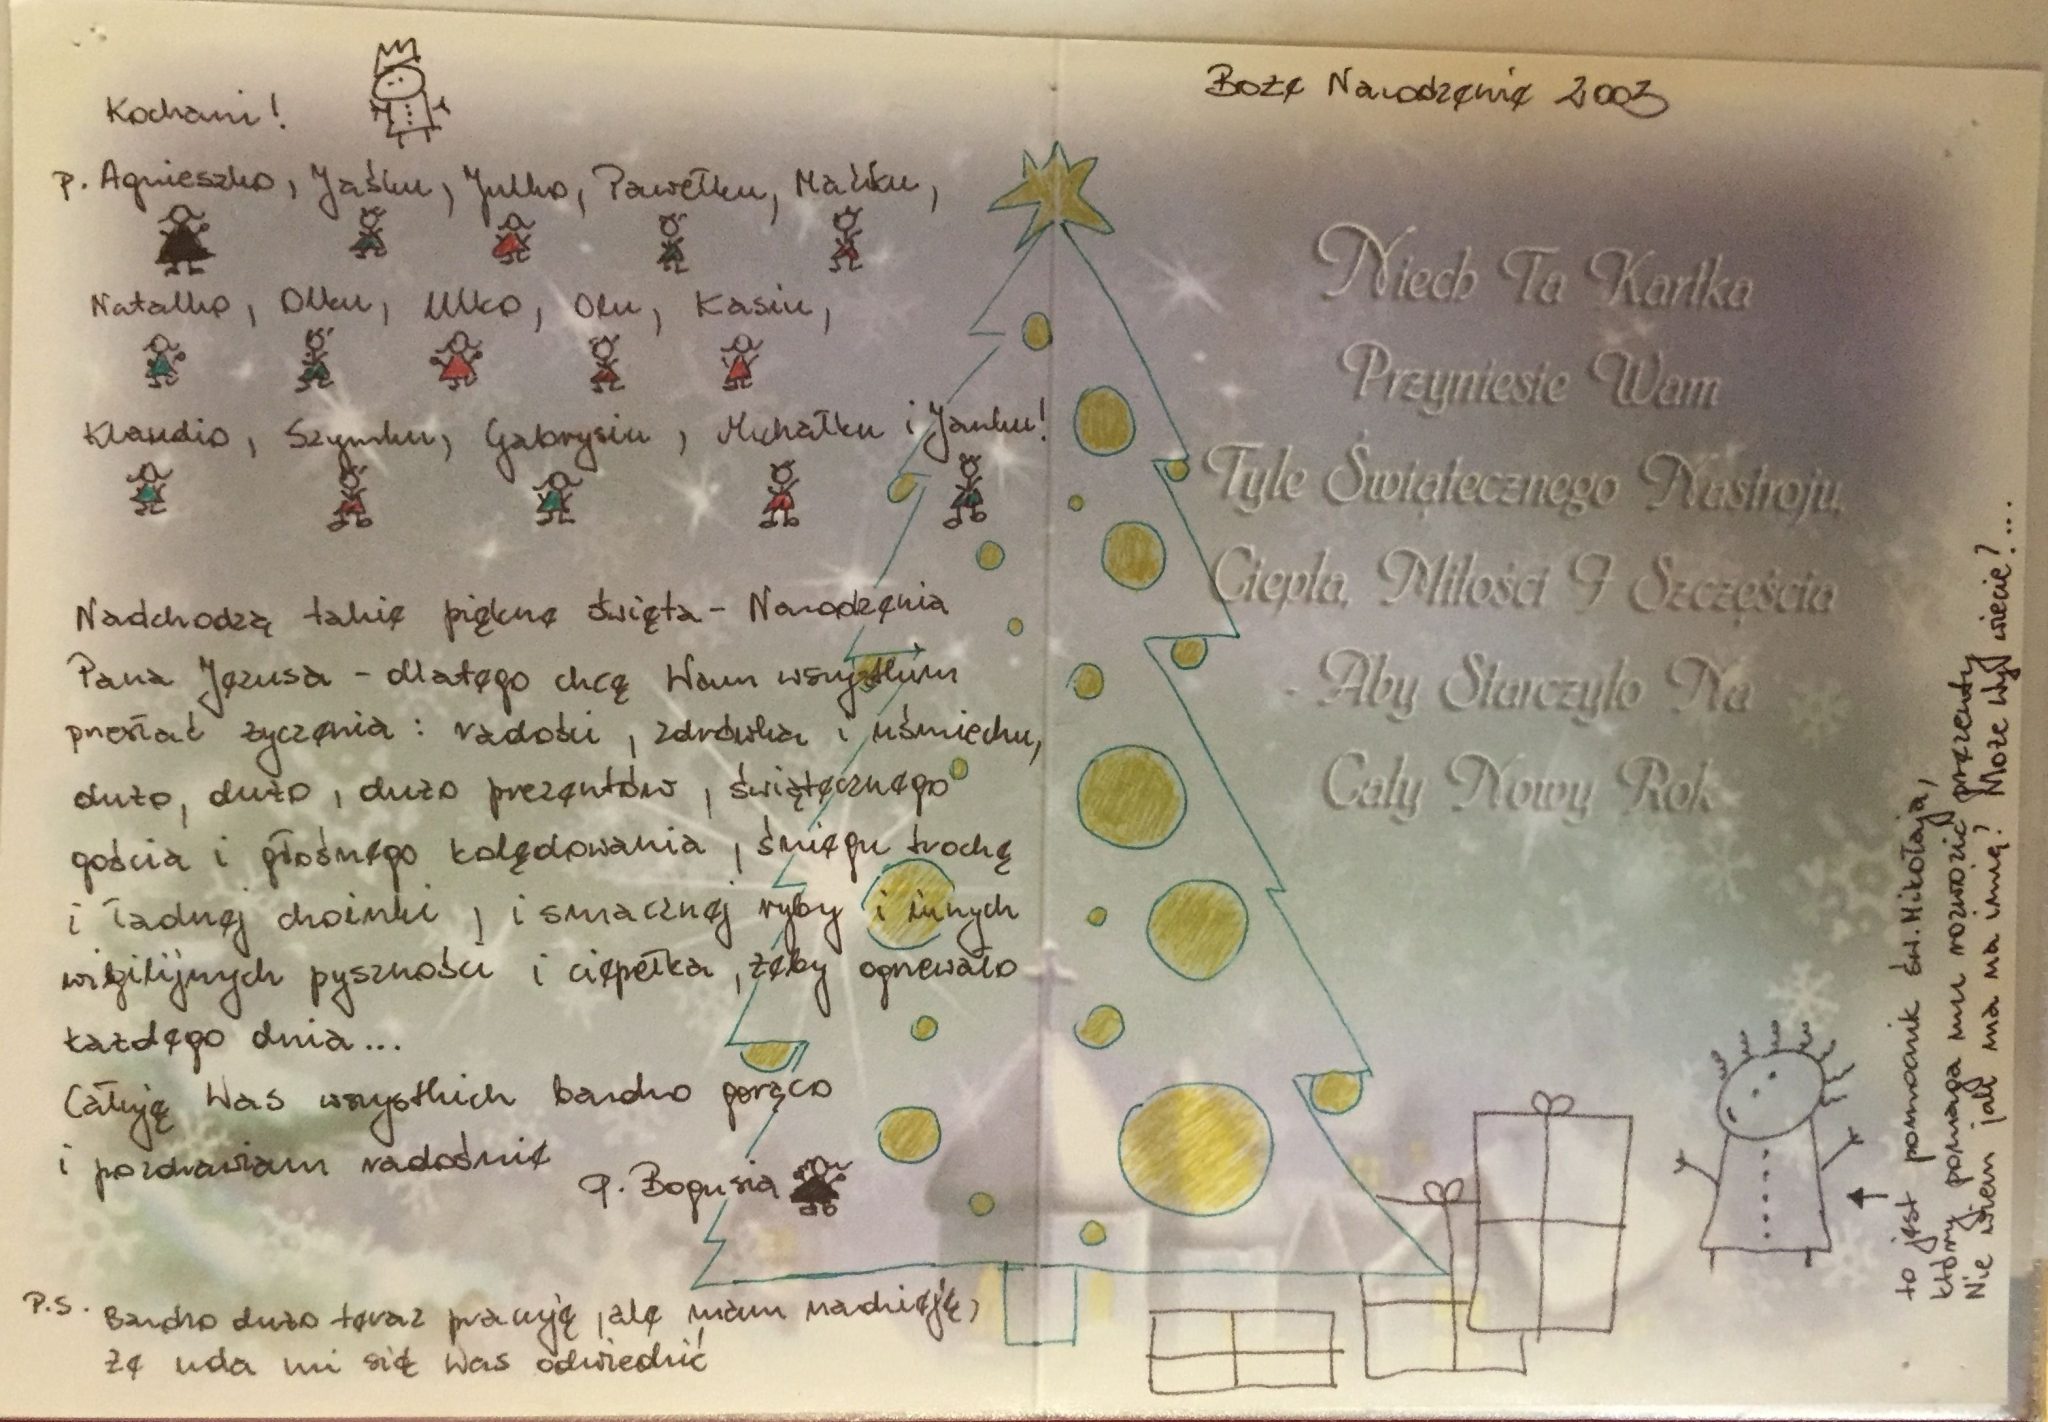 Kochani!
p. Agnieszko, Jaśku, Julko, Pawełku, Maćku,
Natalko, Olku, Ulko, Olu, Kasiu,
Klaudio, Szymku, Gabrysiu, Michałku i Janku!
Nadchodzą takie piękne święta - Narodzenia
Pana Jezusa - dlatego chcę Wam wszystkim
przesłać życzenia: radości, zdrówka i uśmiechu,
dużo, dużo, dużo prezentów, świątecznego
gościa i głośnego kolędowania, śniegu trochę
i ładnej choinki, i smacznej ryby i innych
wigilijnych pyszności i ciepełka, żeby ogrzewało
każdego dnia...
Całuję Was wszystkich bardzo gorąco
i pozdrawiam radośnie
p. Bogusia
P.S. Bardzo dużo teraz pracuję, ale mam nadzieję,
że uda mi się Was odwiedzić
Boże Narodzenie 2003
Niech Ta Kartka
Przyniesie Wam
Tyle Świątecznego Nastroju,
Ciepła, Miłości I Szczęścia
- Aby Starczyło Na
Cały Nowy Rok
to jest pomocnik św. Mikołaja,
który pomaga mu rozwozić prezenty
Nie wiem jak ma na imię? Może Wy wiecie?...